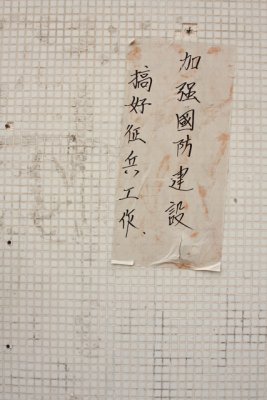 加强國防建設
搞好征兵工作.